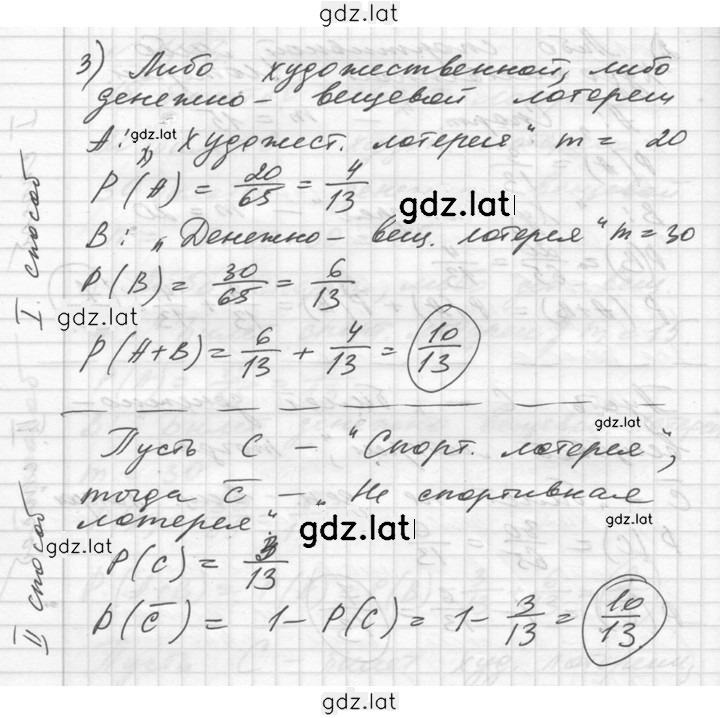 gdz.lat
3) Либо художественной, либо
денежно – вещевой лотереи
A: „Художест. лотерея“ m = 20
gdz.lat
P(A) = 20/65 = 4/13
gdz.lat
B: „Денежно – вещ. лотерея“ m = 30
P(B) = 30/65 = 6/13
gdz.lat
P(A+B) = 6/13 + 4/13 = 10/13
I способ
gdz.lat
Пусть C – "Спорт. лотерея",
тогда C̅ – „Не спортивная
лотерея".
gdz.lat
gdz.lat
P(C) = 3/13
P(C̅) = 1 – P(C) = 1 – 3/13 = 10/13
II способ
gdz.lat